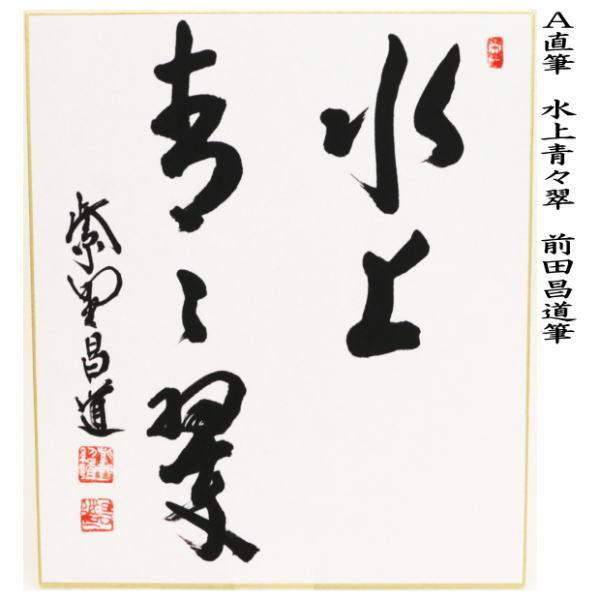 A直筆　水上青々翠　前田昌道筆
水上
青々翠
紫野昌道